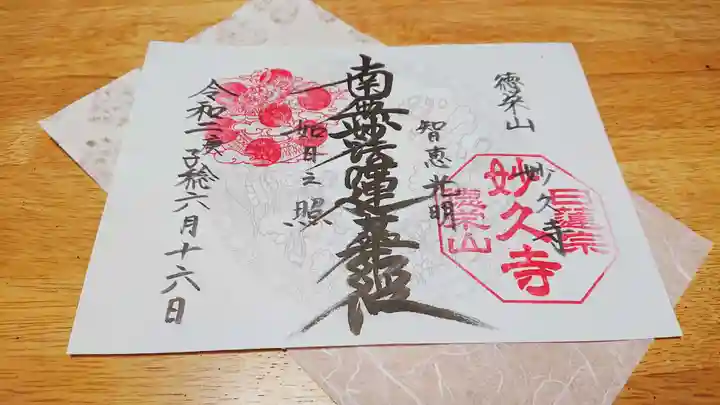 徳栄山
妙久寺
日蓮宗
妙久寺
徳栄山
智恵光明
南無妙法蓮華経
如日之照
令和二庚子稔六月十六日